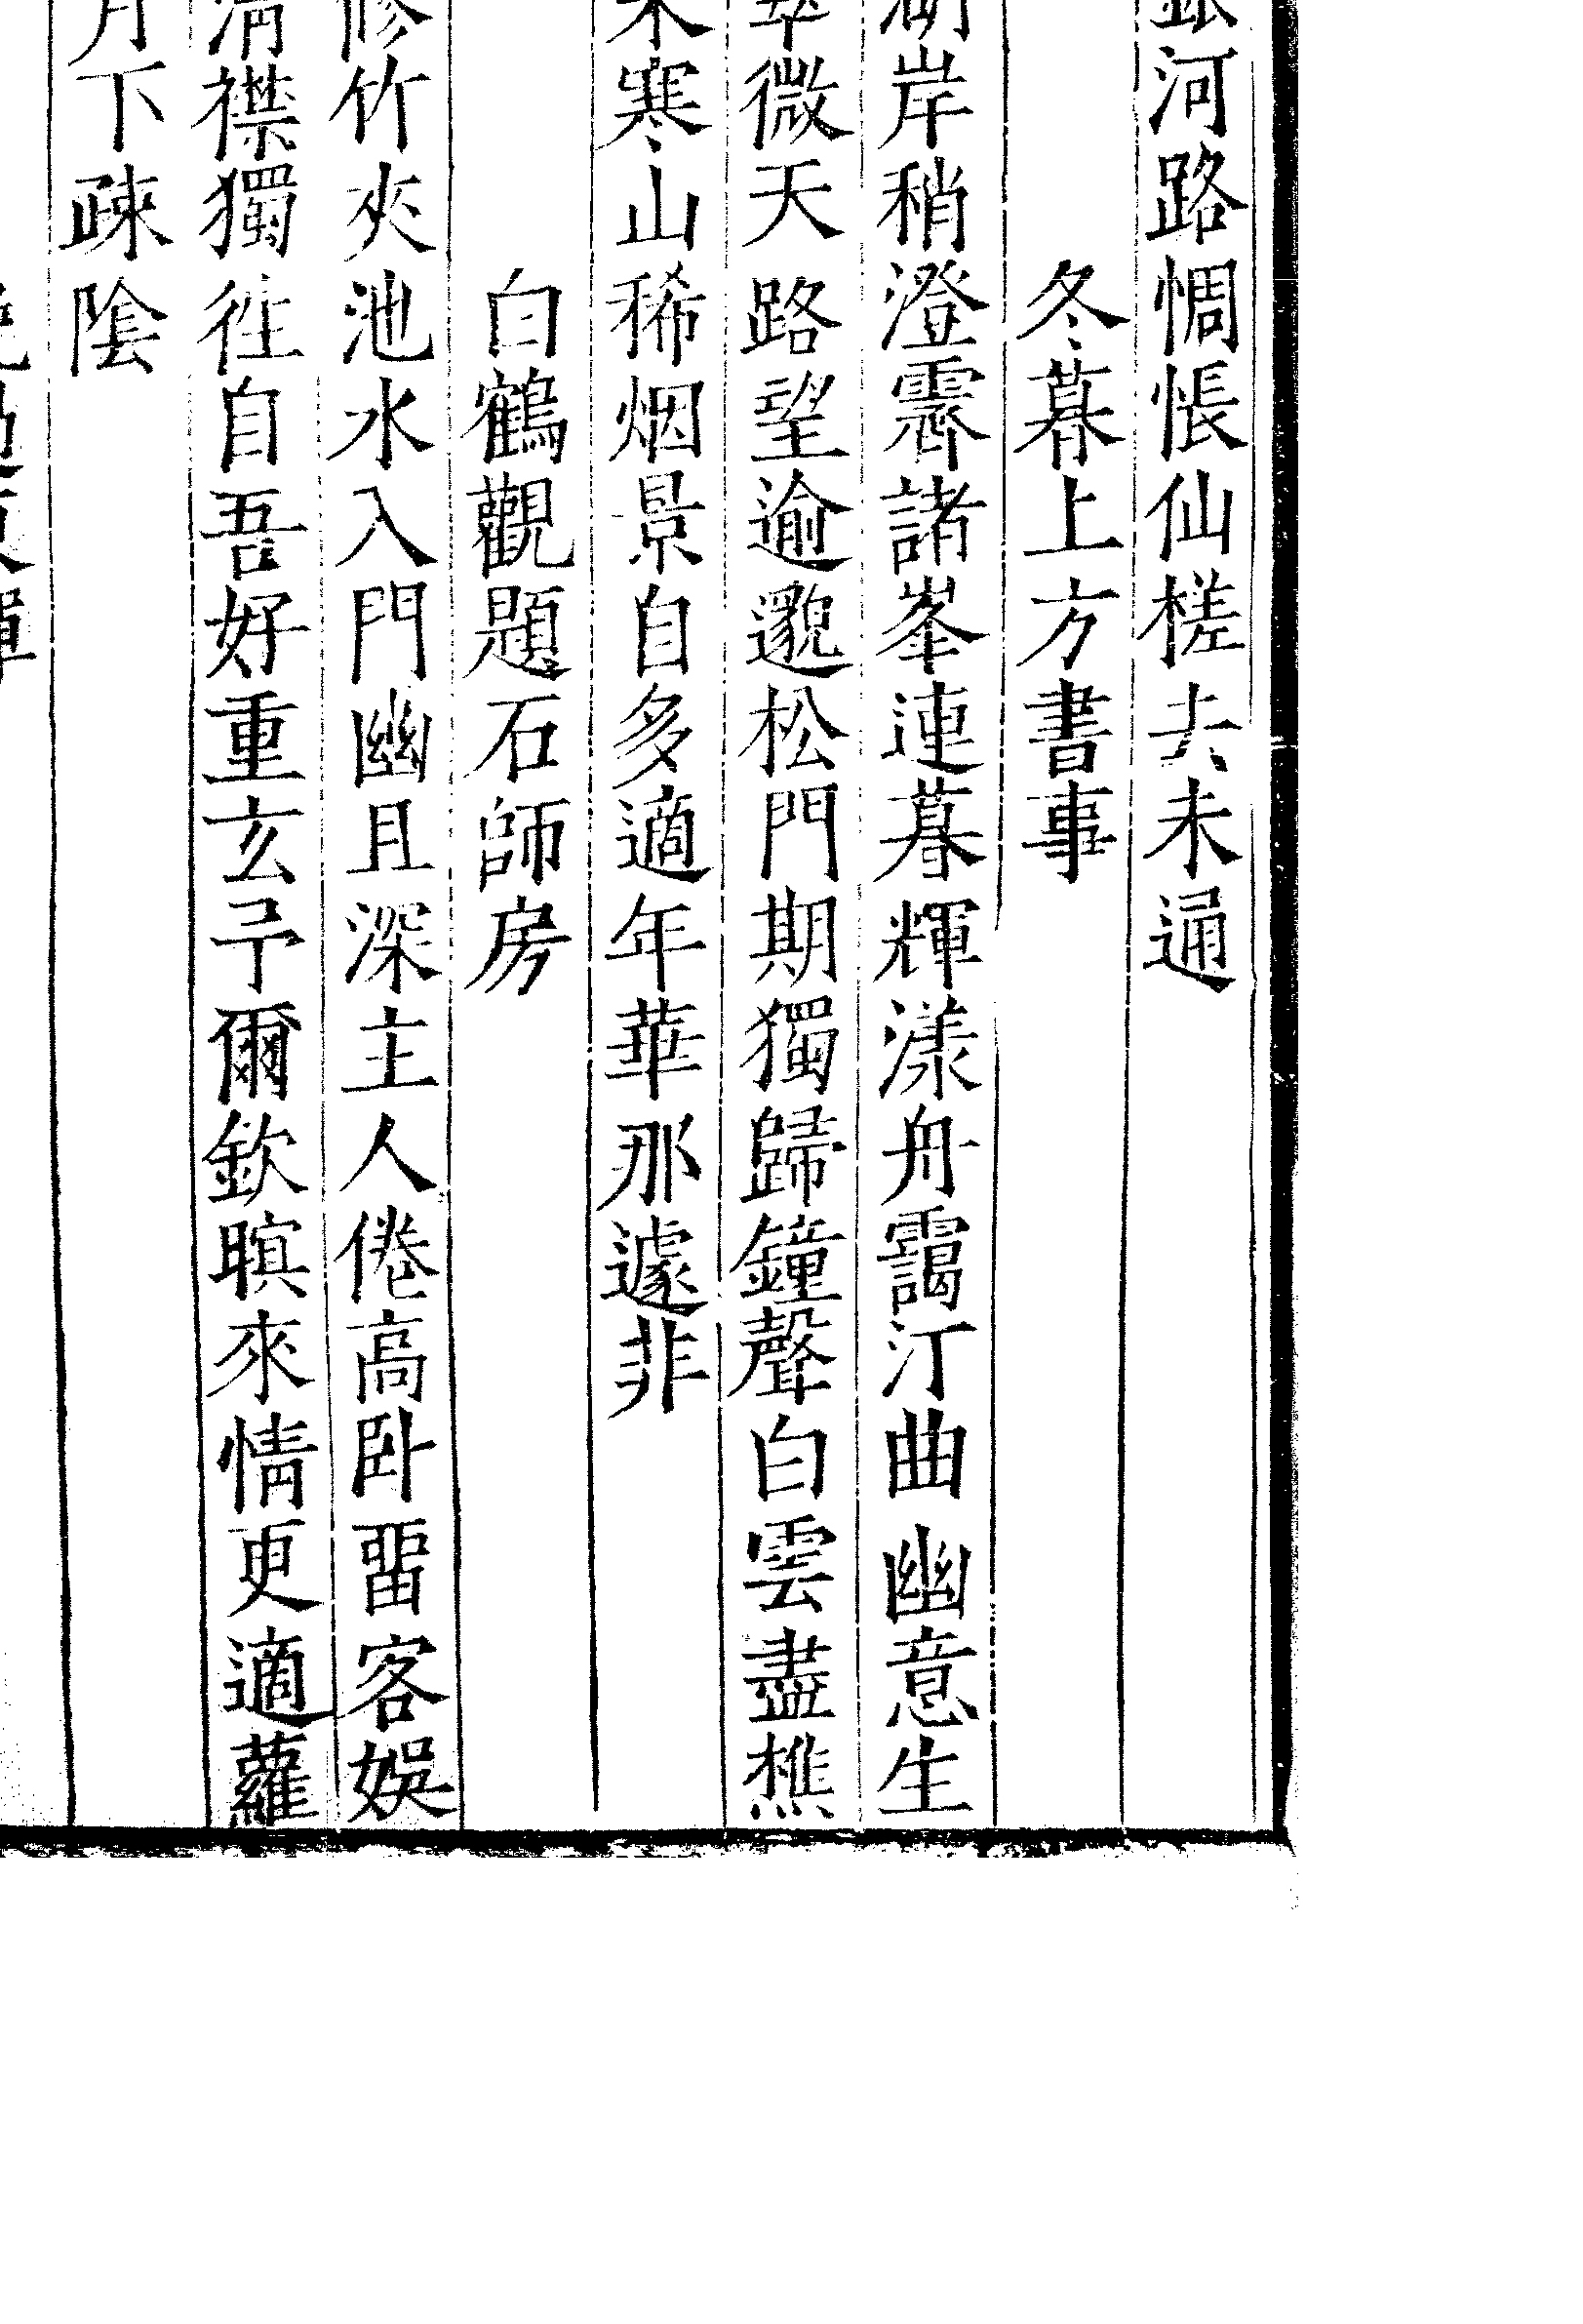 銀河路惆悵仙槎去未通
冬暮上方書事
湖岸稍澄霽諸峯連暮輝漾舟靄汀曲幽意生
翠微天路望逾邈松門期獨歸鐘聲白雲盡樵
木寒山稀烟景自多適年華那遽非
白鶴觀題石師房
修竹夾池水入門幽且深主人倦高臥畱客娛
清襟獨往自吾好重玄予爾欽暝來情更適蘿
月下疎陰